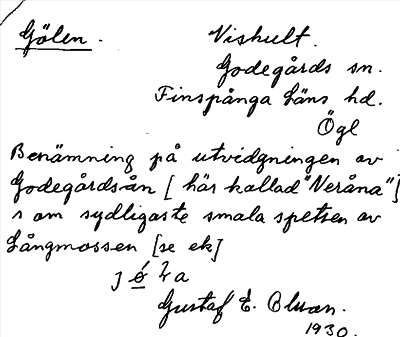 Gölen. Viskult.
Godegårds sn.
Finspånga Läns hd.
Ögl
Benämning på utvidgningen av
Godegårdsån [här kallad "Veråna"]
som sydligaste smala spetsen av
Långmossen [se ek]
Gustaf E.
1930.